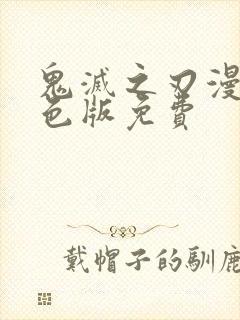 鬼滅之刃漫
色版免費
戴帽子的馴鹿